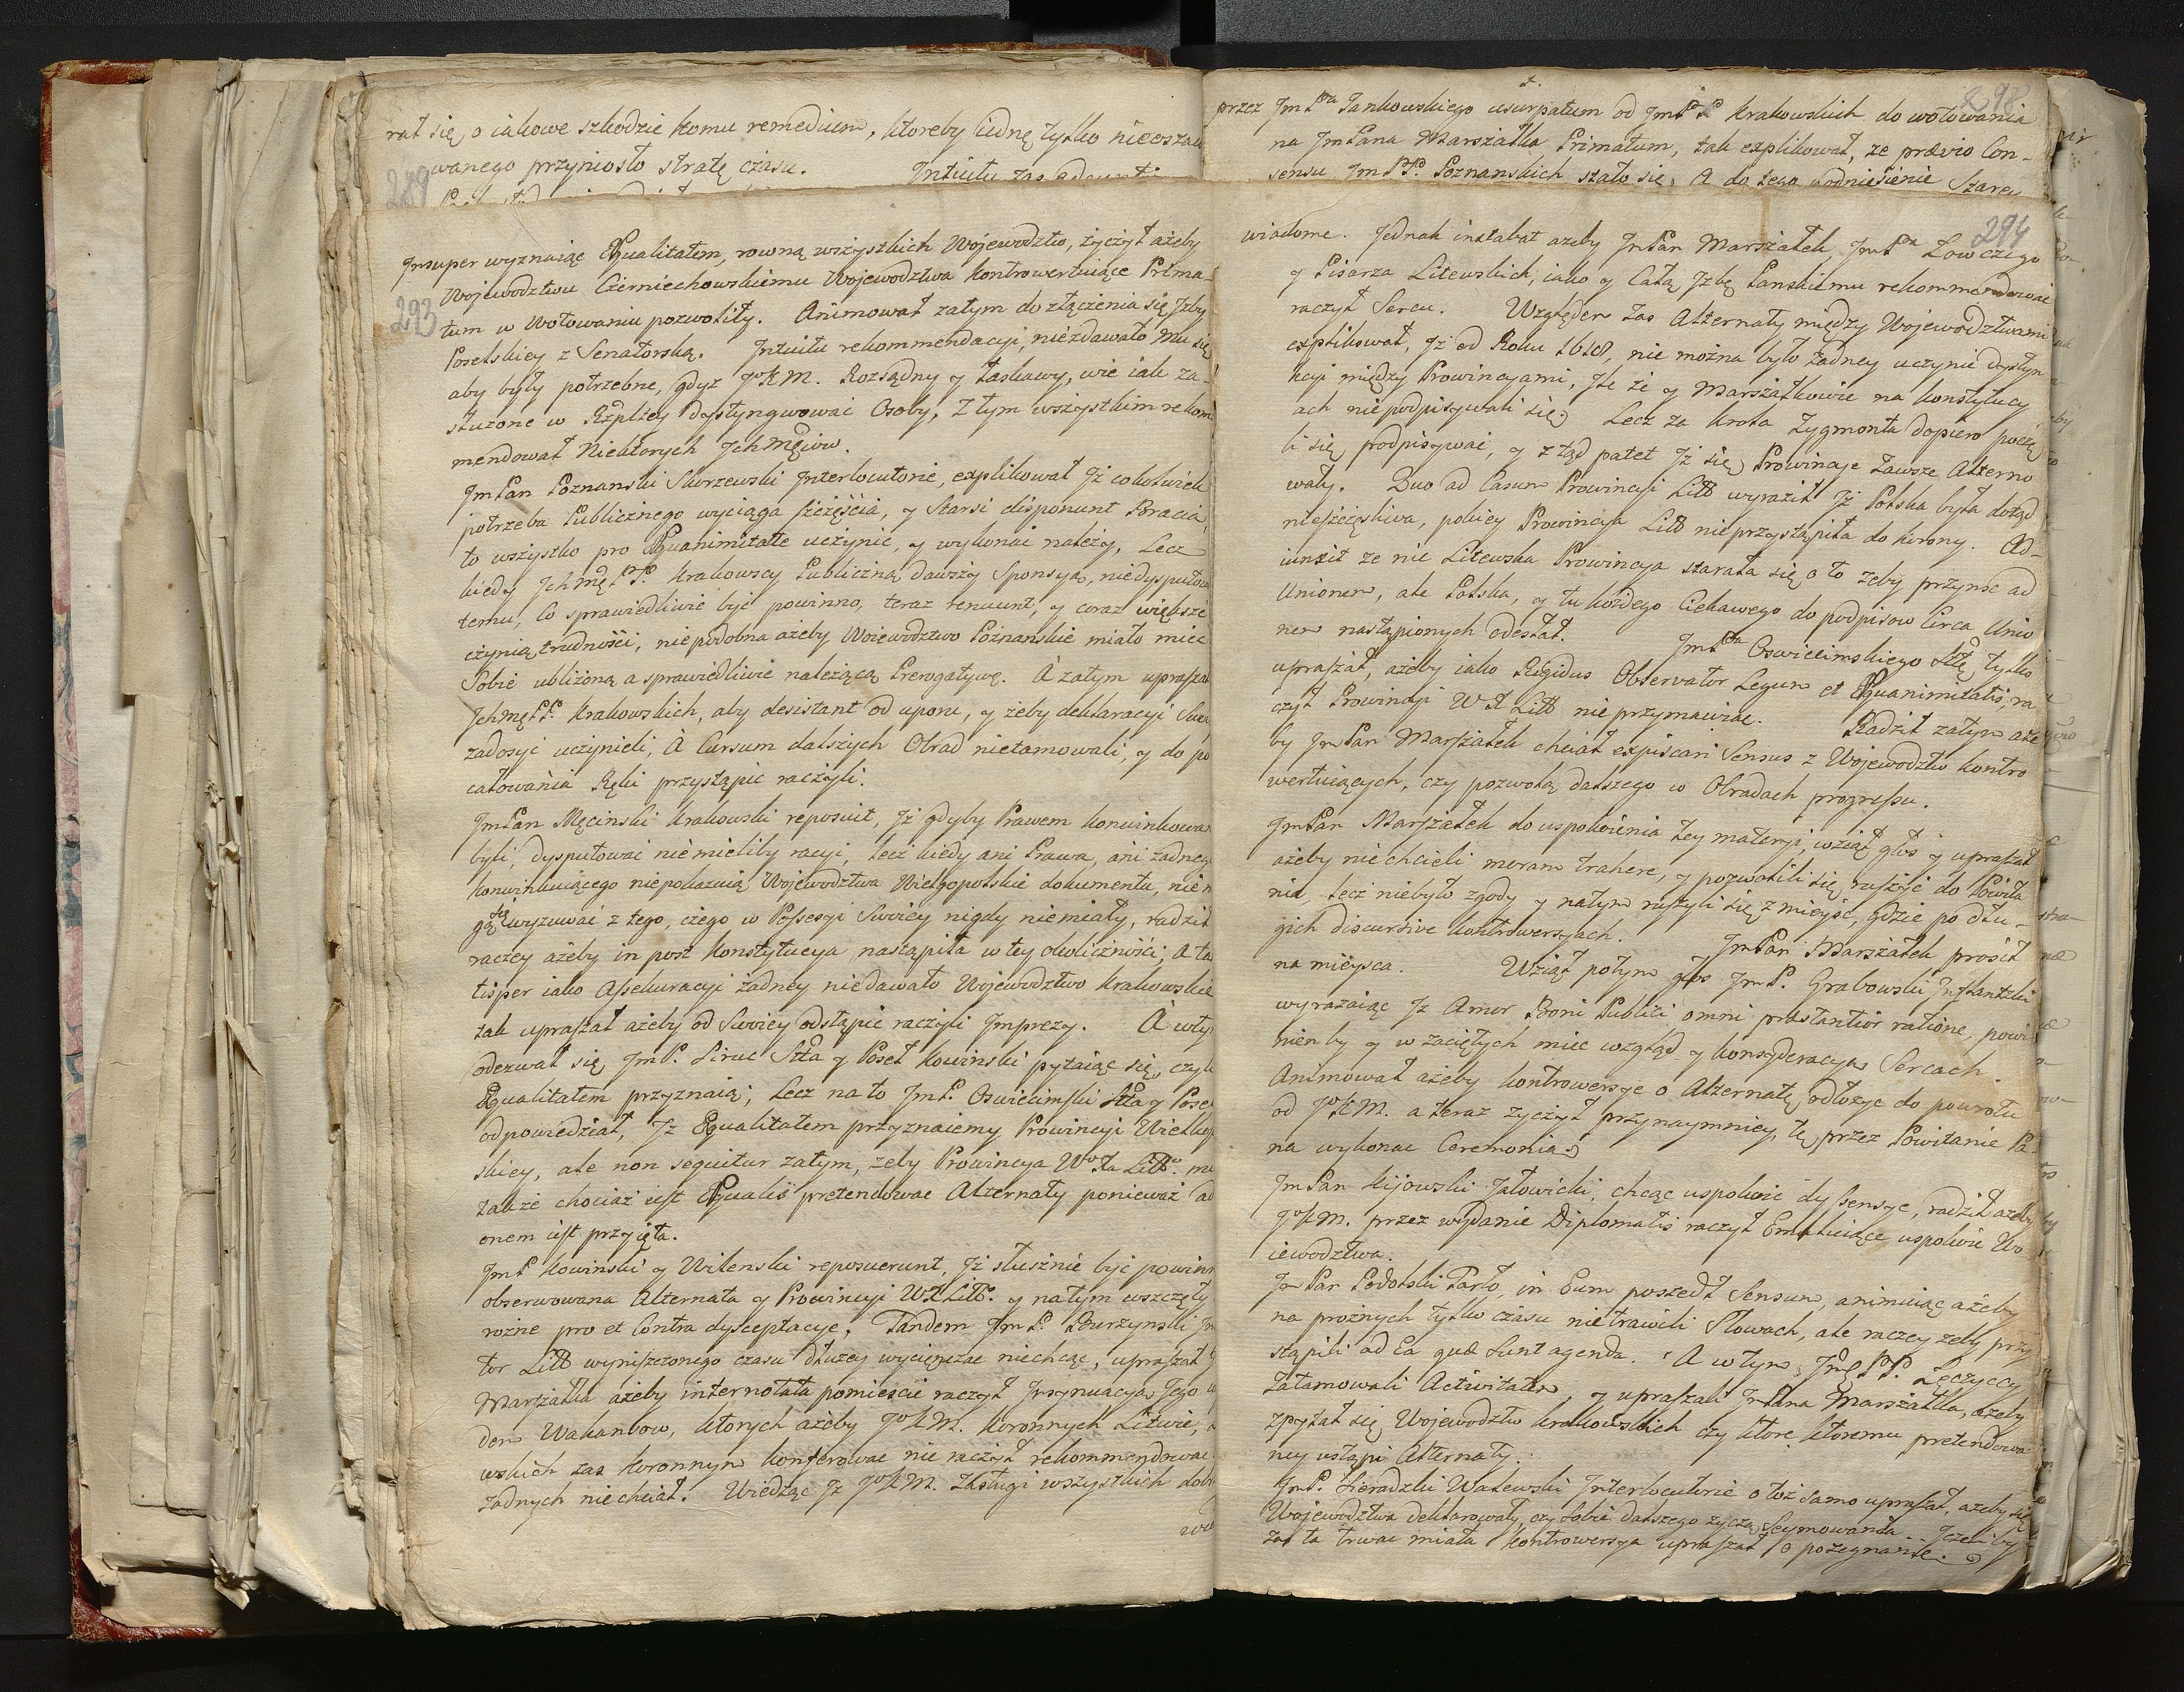 rat się, o iakowe szkodzie komu remedium, ktoreby iednę tylko nieoszaco
wanego przyniosło stratę czasu. Intuitu zas
289
Insuper wyznaiąc Æqualitatem, rowną wszystkich Wojewodztw, życzył ażeby
Wojewodztwu Czerniechowskiemu Wojewodztwa kontrowertuiące Prima-
293
tum w Wotowaniu pozwoliły. Animował zatym do złączenia się Jzby
Poselskiey z Senatorską. Intuitu rekommendacyi, niezdawało Mu się
aby były potrzebne, gdyż JoKM. Rozsądny y łaskawy, wie iak za-
służone w Rzpltey dystyngwować Osoby, Z tym wszystkim rekom
mendował Niektorych Jchmęciow.
JmPan Poznanski Skorzewski Interlocutorie, explikował Jż cokolwiek
potrzeba Publicznego wyciąga szczęścia, y Starsi disponunt Bracia,
to wszystko pro Æquanimitate uczynić, y wykonać należy, Lecz
kiedy JchmęPP. Krakowscy Publiczną dawszy Sponsyą, niedysputowa
temu, co sprawiedliwie być powinno, teraz renuunt, y coraz większe
czynią trudności, niepodobna ażeby Woiewodztwo Poznanskie miało miec
Sobie ubliżoną a sprawiedliwie należącą Prerogatywę. A zatym upraszał
JchmęPP. Krakowskich, aby desistant od uporu, y żeby deklaracyi Swey
zadosyć uczynili, à Cursum dalszych Obrad nietamowali, y do po
całowania Ręki przystąpić raczyli.
JmPan Męcinski Krakowski reposuit, Jż gdyby Prawem konwinkowani
byli, dysputować niemieliby racyi, lecz kiedy ani Prawa, ani żadnego
konwinkuiącego niepokazuią Wojewodztwa Wielgopolskie dokumentu, niem
gą się wyzuwać z tego, czego w Possesyi Swoiey nigdy niemiały, radził
raczey ażeby in post konstytucya nastąpiła w tey okoliczności; A tan
tisper iako Assekuracyi żadney niedawało Wojewodztwo Krakowskie
tak upraszał ażeby od Swoiey odstąpić raczyli Imprezy. A wtym
odezwał się JmP. Siruc Stta y Poseł Kowinski pytaiąc się, czyli
Æqualitatem przyznaią; Lecz na to JmP. Oswiecimski Stta y Poseł
odpowiedział, Jż Æqualitatem przyznaiemy Prowincyi Wielkop
skiey, ale non sequitur zatym, żeby Prowincya WoXa Litto. mi
także chociaż iest Æqualis pretendować Alternaty ponieważ ad
onem iest przyięta.
JmP Kowinski y Wilenski reposuerunt, Jż słusznie być powinn
obserwowana Alternata y Prowincyi WX Litto. y na tym wszczęły
rożne pro et Contra dysceptacye. Tandem JmP. Burzynski In
tor Litto wyniszczonego czasu dłużey wyciężzac niechcąc, upraszał J
Marszałka ażeby internotata pomieścić raczył Insynuacyą Jego w
dem Wakansow, ktorych ażeby JoKM. Koronnych Litwie,
wskich zas Koronnym konferować nie raczył rekommendować
żadnych niechciał. Wiedząc Jż JoKM. Zasługi wszystkich dobr
wia
298
przez JmPa Jankowskiego usurpatum od JmPP Krakowskich do wotowania
na JmPana Marszałka Primatum, tak explikował, ze prævio Con-
sensu JmPP. Poznanskich stało się, A do tego podniesienie
294
wiadome. Jednak instabat azeby JmPan Marszałek, JmPa Łowczego
y Pisarza Litewskich, iako y Całą Jzbę Panskiemu rekommendować
raczył Sercu. Względem zas Alternaty między Wojewodztwami
explikował, Jż od Roku 1618, nie można było żadney uczynić dystyn
kcyi między Prowincyami, Jle że y Marszałkowie na konstytucy
ach niepodpisywali się, Lecz za Krola Zygmonta dopiero poczę
li się podpisywać, y ztąd patet Jż się Prowincye zawsze Alterno
wały. Quo ad Casum Prowincyi Litt wyraził Jż Polska była dotąd
nieszczęśliwa, pokiey Prowincya Litt nieprzystąpiła do Korony. Ad-
iunxit ze nie Litewska Prowincya starała się o to żeby przyisc ad
Unionem, ale Polska, y tu każdego Ciekawego do podpisow Circa Unio
nem nastąpionych odesłał. JmPa Oswiecimskiego Sttę tylko
upraszał, ażeby iako Rigidus Observator Legum et Æquanimitatis, ra
czył Prowincyi WX Litt nie przymawiac. Radził zatym aże
by JmPan Marszałek chciał expiscari Sensus z Wojewodztw kontro
wertuiących, czy pozwolą dalszego w Obradach progressu.
JmPan Marszałek do uspokoienia tey materyi, wziął głos y upraszał
ażeby niechcieli moram trahere, y pozwolili się ruszyć do Powita
nia, lecz niebyło zgody y natym ruszyli się z mieysc, gdzie po dłu-
gich discursive kontrowersyach. JmPan Marszałek prosił
na mieysca. Wziął potym głos JmP. Grabowski Inflantski
wyrażaiąc Jż Amor Boni Publici omni præstantior ratione, powi
nien by y w zaciętych miec wzgląd y konsyderacyą Sercach.
Animował ażeby kontrowersye o Alternatę, odłożyć do powrotu
od JoKM. a teraz zyczył przynaymniey, tę przez Powitanie Pa-
na wykonac Ceremonią.
JmPan Kijowski Jałowicki, chcąc uspokoic dyssensye, radził ażeby
JoKM. przez wydanie Diplomatis raczył Emuluiące uspokoic Wo
iewodztwa.
JmPan Podolski Tarło, in Eum poszedł Sensum, animuiąc ażeby
na prożnych tylko czasu nietrawili Słowach, ale raczey zeby przy
stąpili ad Ea quæ Sunt agenda. A w tym JmęPP. Łęczyccy
zatamowali Activitatem, y upraszali JmPana Marszałka, ażeby
zpytał się Wojewodztw Krakowskich czy ktore ktoremu pretendowa
ney ustąpi Alternaty.
JmP. Sieradzki Walewski Interlocutorie o toż samo upraszał, ażeby się
Wojewodztwa deklarowały, czy Sobie dalszego życzą Seymowania. Jeżeliby
zas ta trwac miała kontrowersya upraszał o pożegnanie.